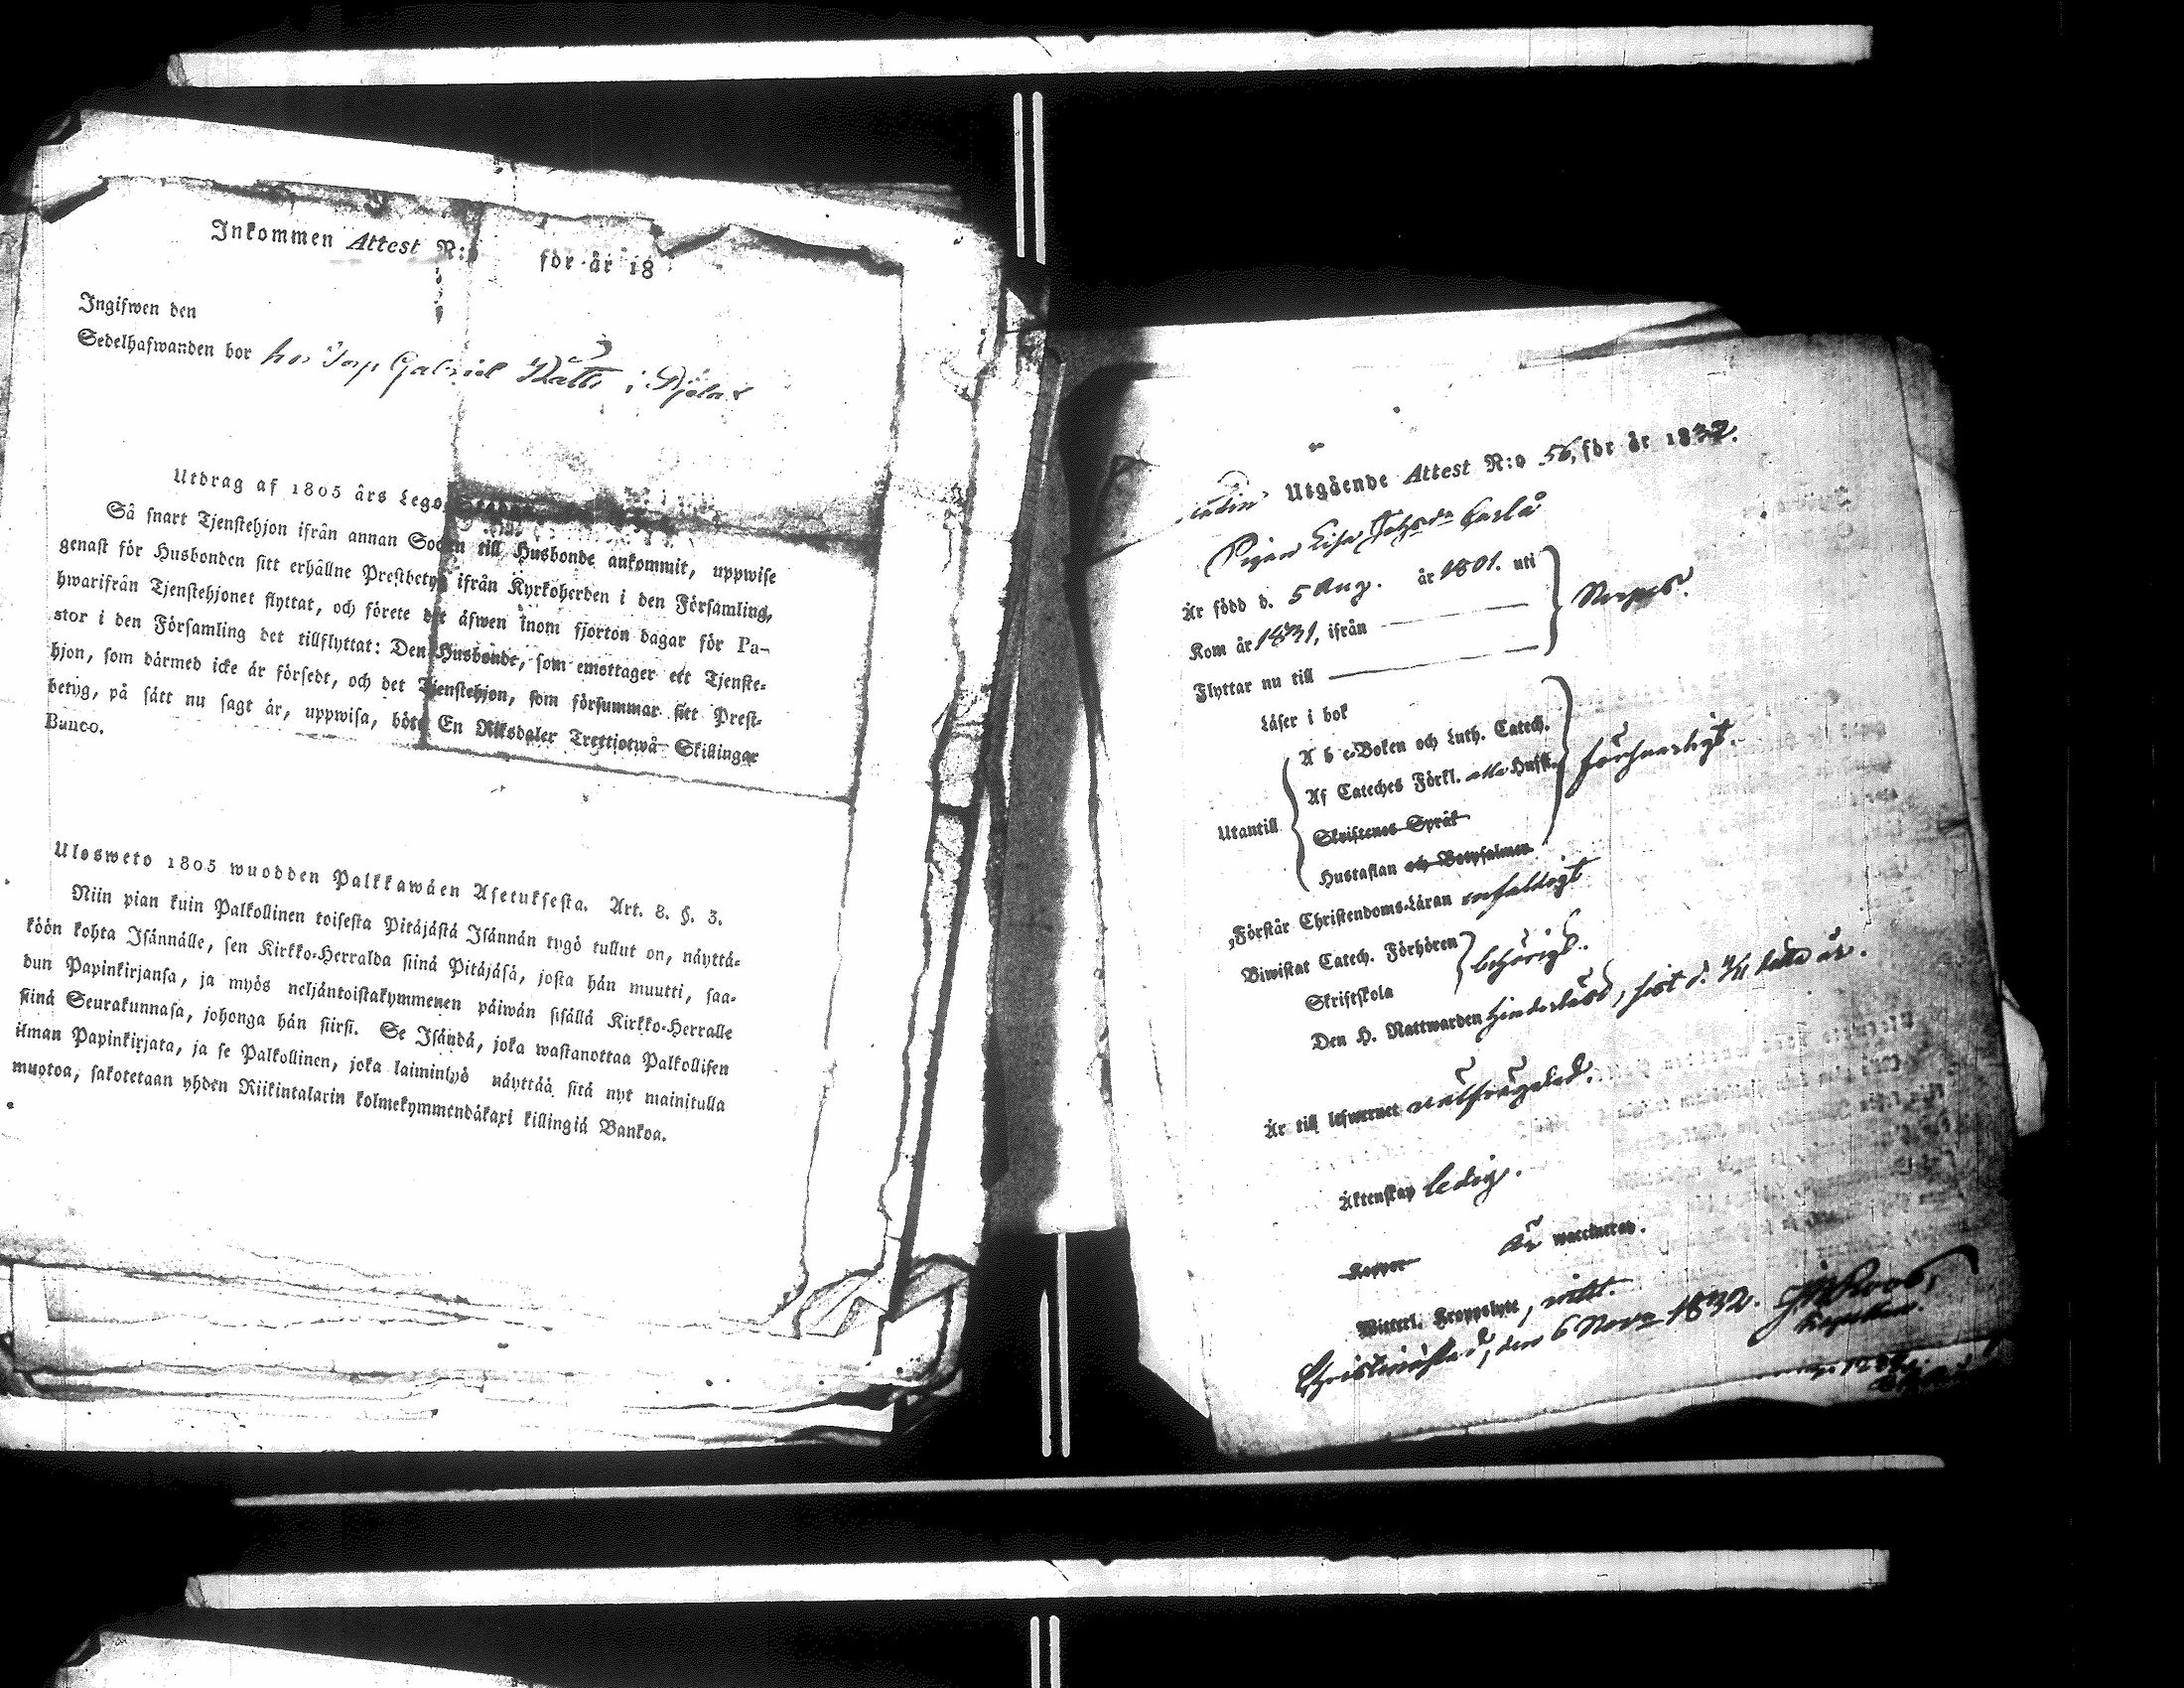 Inkommen Attest N:o för år 18
Ingifwen den
Sedelhafwanden bor hos Torp Gabriel i
Utdrag af 1805 års Lego
Så snart Tjenstehjon ifrån annan Socken till Husbonde ankommit, uppwise
genast för Husbonden sitt erhållne Prestbetyg ifrån Kyrkoherden i den Församling,
hwarifrån Tjenstehjonet flyttat, och förete det äfwen inom fjorton dagar för Pa-
stor i den Församling det tillflyttat: Den Husbonde, som emottager ett Tjenste-
hjon, som därmed icke är försedt, och det Tjenstehjon, som försummar sitt Prest-
betyg, på sätt nu sagt är, uppwisa, böte En Riksdaler Trettiotwå Skillingar
Banco.
Ulosweto 1805 wuodden Palkkawäen Asetuksesta. Art. 8. §. 3.
Niin pian kuin Palkollinen toisesta Pitäjästä Isännän tygö tullut on, näyttä-
köön kohta Isännälle, sen Kirkko-Herralda siinä Pitäjäsä, josta hän muutti, saa-
dun Papinkirjansa, ja myös neljäntoistakymmenen päiwän sisällä Kirkko-Herralle
siinä Seurakunnasa, johonga hän siirsi. Se Isändä, joka wastanottaa Palkollisen
ilman Papinkirjata, ja se Palkollinen, joka laiminlyö näyttää sitä nyt mainitulla
muotoa, sakotetaan yhden Riikintalarin kolmekymmendäkaxi killingiä Bankoa.
Utgående Attest N:o 56, för år 1832.
Pigan Lisa Johsdr Carlå
Är född d. 5 Aug. år 1801. uti
Kom år 1831, ifrån
Flyttar nu till
Närpes.
Läser i bok
A b c-Boken och Luth. Catech.
Af Cateches Förkl. alla Hufst.
Utantill
Skriftenes Språk
Hustaflan och Botpsalmen
försvarligt.
Förstår Christendoms-Läran enfaldigt
Biwistat Catech. Förhören
Skriftskola
behörigt.
Den H. Nattwarden hinderlöst, sist d. 4/11 detta år.
Är till lefwernet wälfrägdad.
Äktenskap ledig.
Koppor är waccinerad.
Witterl. Kroppslyte, intet.
Christinestad, den 6 Novr 1832.
Kapellan.